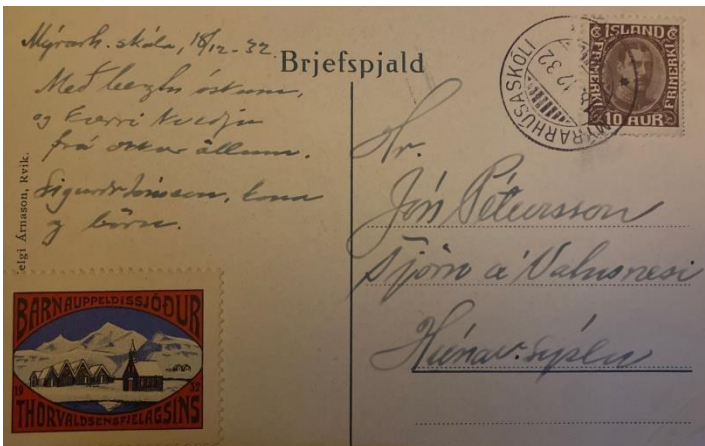 Mýrarh. skóla, 18/12-32.
Með beztu óskum,
og kærri kveðju
frá okkur öllum.
Sigurðr Jónsson, kona
og börn.
Brjefspjald
elgi Árnason, Rvík.
MÝRARHÚSASKÓLI
12 32
ÍSLAND
FRÍMERKI
FRÍMERKI
10 AUR
Hr.
Jón Pétursson
á Vatnsnesi
Húnav.sýslu
BARNAUPPELDISSJÓÐUR
19 32
THORVALDSENSFJELAGSINS